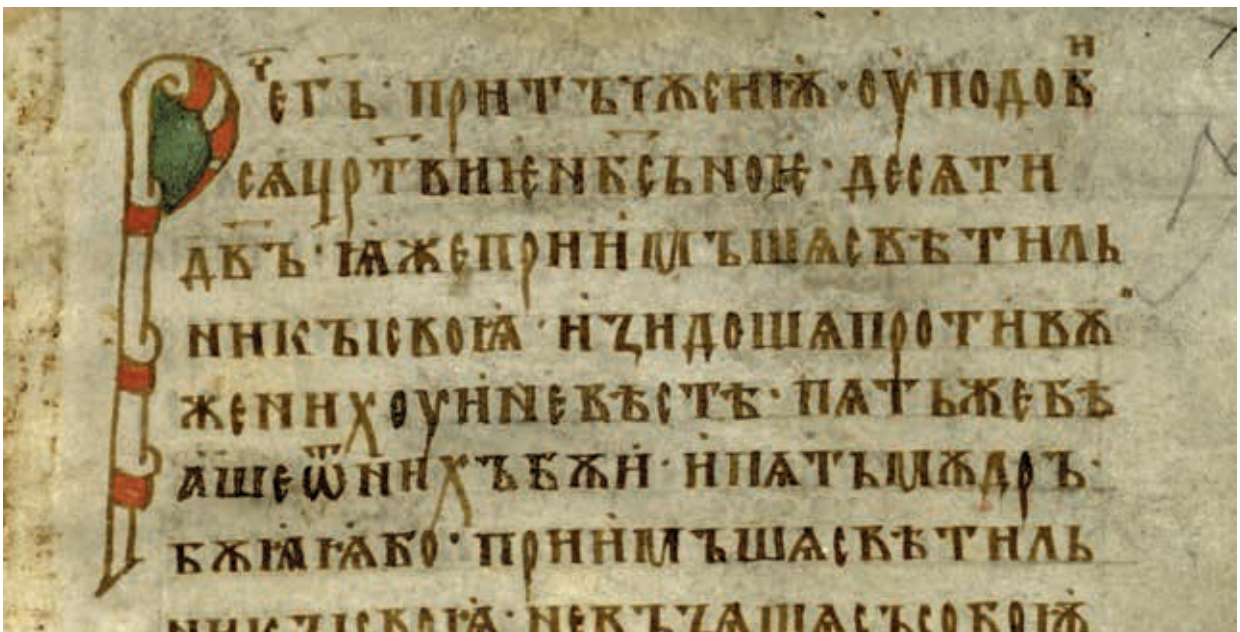 Рⷱ҇егь · притъчѫсеиѭ · оуподобⷩ
сѧцр҃твиѥнб҃сьноѥ · десѧти
дв҃ъ · ѩжеприимъшѧсвѣтиль
никъісвоѩ · изидошѧпротивѫ
женихоуиневѣстѣ · пѧтьжебѣ
ашеѿнихъбѫи · ипѧтьмѫдръ ·
бѫѩѩбо · приимъшѧсвѣтиль
никъісвоѩ · невъзѧшѧсъсобоѭ